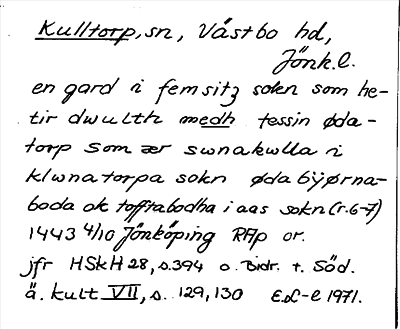 Kulltorp, sn, Västbo hd,
Jönk.l.
en gard i femsitz sokn som he-
tir dwulth medh tessin øda-
torp som ær swnakwlla i
klwnatorpa sokn øda býørna-
boda ok tofftabodha i aas sokn (r.6-7)
1443 4/10 Jönköping RAp or.
jfr HSkH 28, s.394 o. Bidr. t. Söd.
ä. kult VII, s. 129, 130 E.L-e 1971.